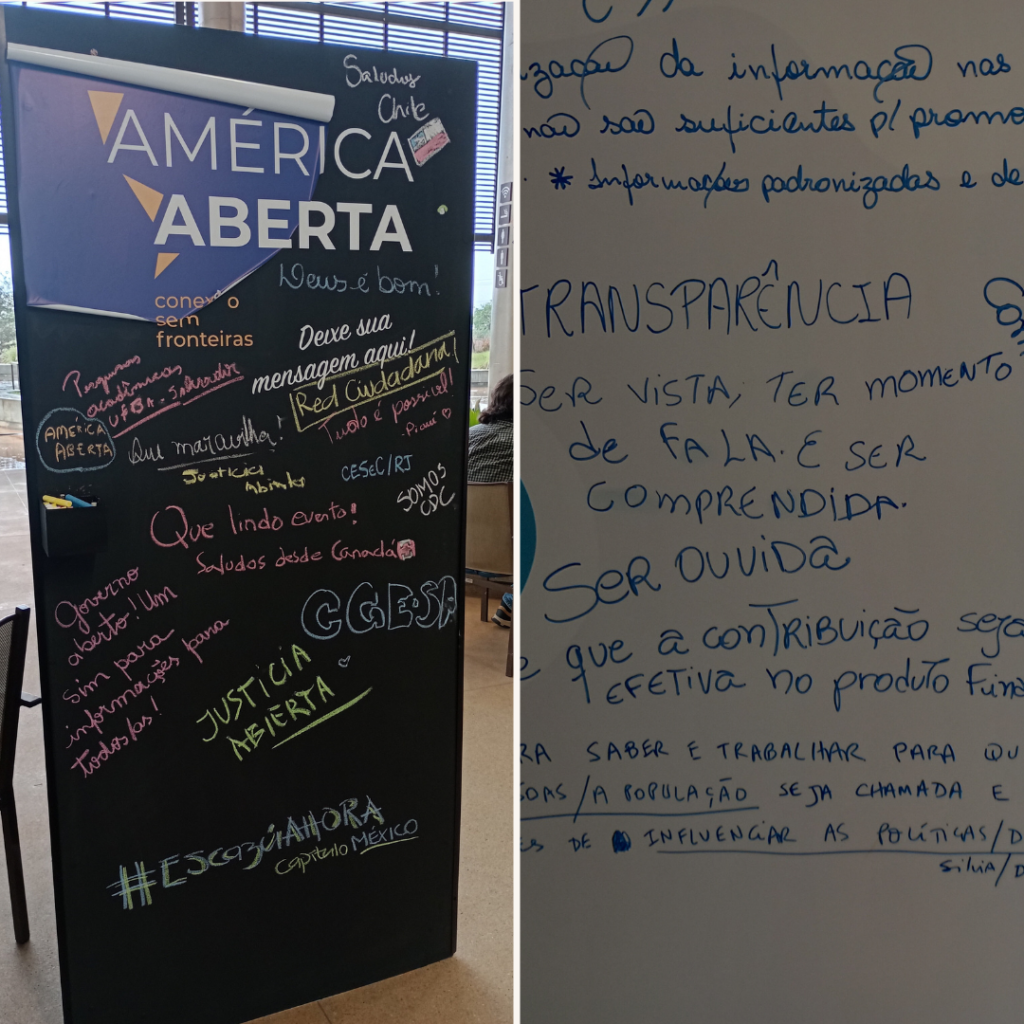 Saludos
Chile
AMÉRICA
ABERTA
Deus é bom!
sem
fronteiras
Deixe sua
mensagem aqui!
Red Ciudadana!
Tudo é possível!
-Piauí
Pesquisas
acadêmicas
UFBA - Salvador
AMÉRICA
ABERTA
Que maravilha!
CESeC/RJ
SOMOS
CDC
Que lindo evento!
Saludos desde Canadá
Governo
aberto! Um
sim para
informações para
todos/as!
JUSTICIA
ABIERTA
#EscazúAHORA
Capítulo MÉXICO
ização da informação nas
não são suficientes p/ promo
* Informações padronizadas e de
TRANSPARÊNCIA
SER VISTA, TER MOMENTO
de FALA. E SER
COMPRENDIDA.
SER OUVIDA
e que a CONTRIBUIÇÃO seja
EFETIVA no produto
RA SABER E TRABALHAR PARA QU
SOAS/A POPULAÇÃO SEJA CHAMADA E
ES DE INFLUENCIAR AS POLÍTICAS/D
Silvia/D